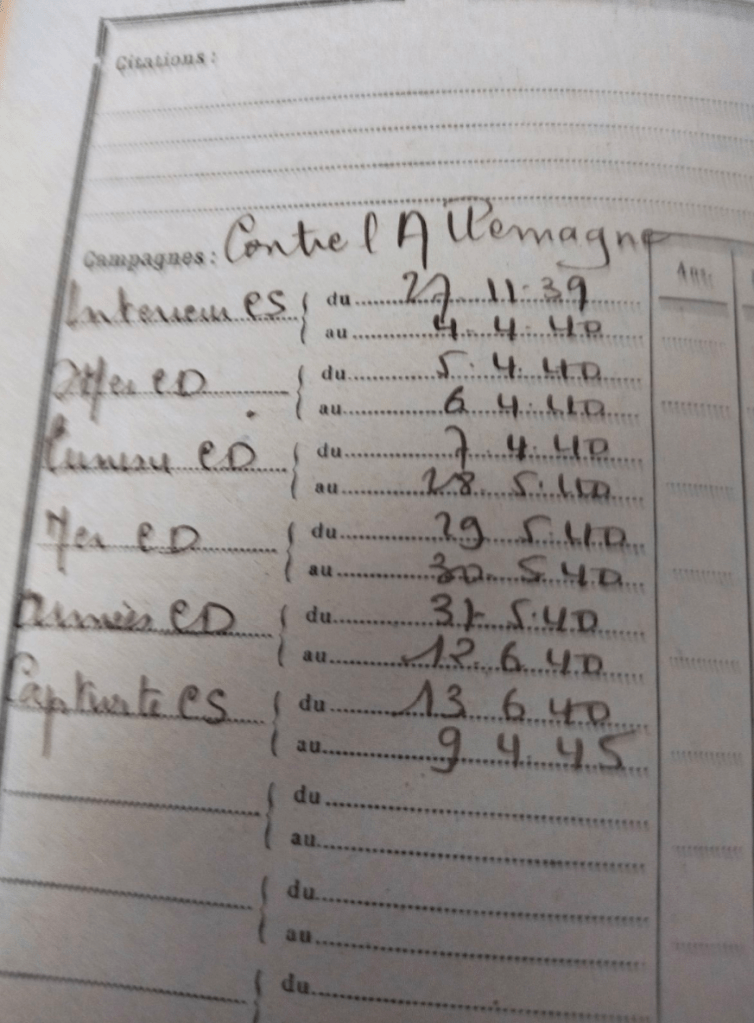 Citations :
Campagnes : Contre l Allemagne
Ans:
Interieur CS du 27 11 39
au 4 4 40
Mer CD du 5 4 40
au 6 4 40
CD du 7 4 40
au 28 5 40
Mer CD du 29 5 40
au 30 5 40
Armées CD du 31 5 40
au 12 6 40
CS du 13 6 40
au 9 4 45
du
au
du
au
du